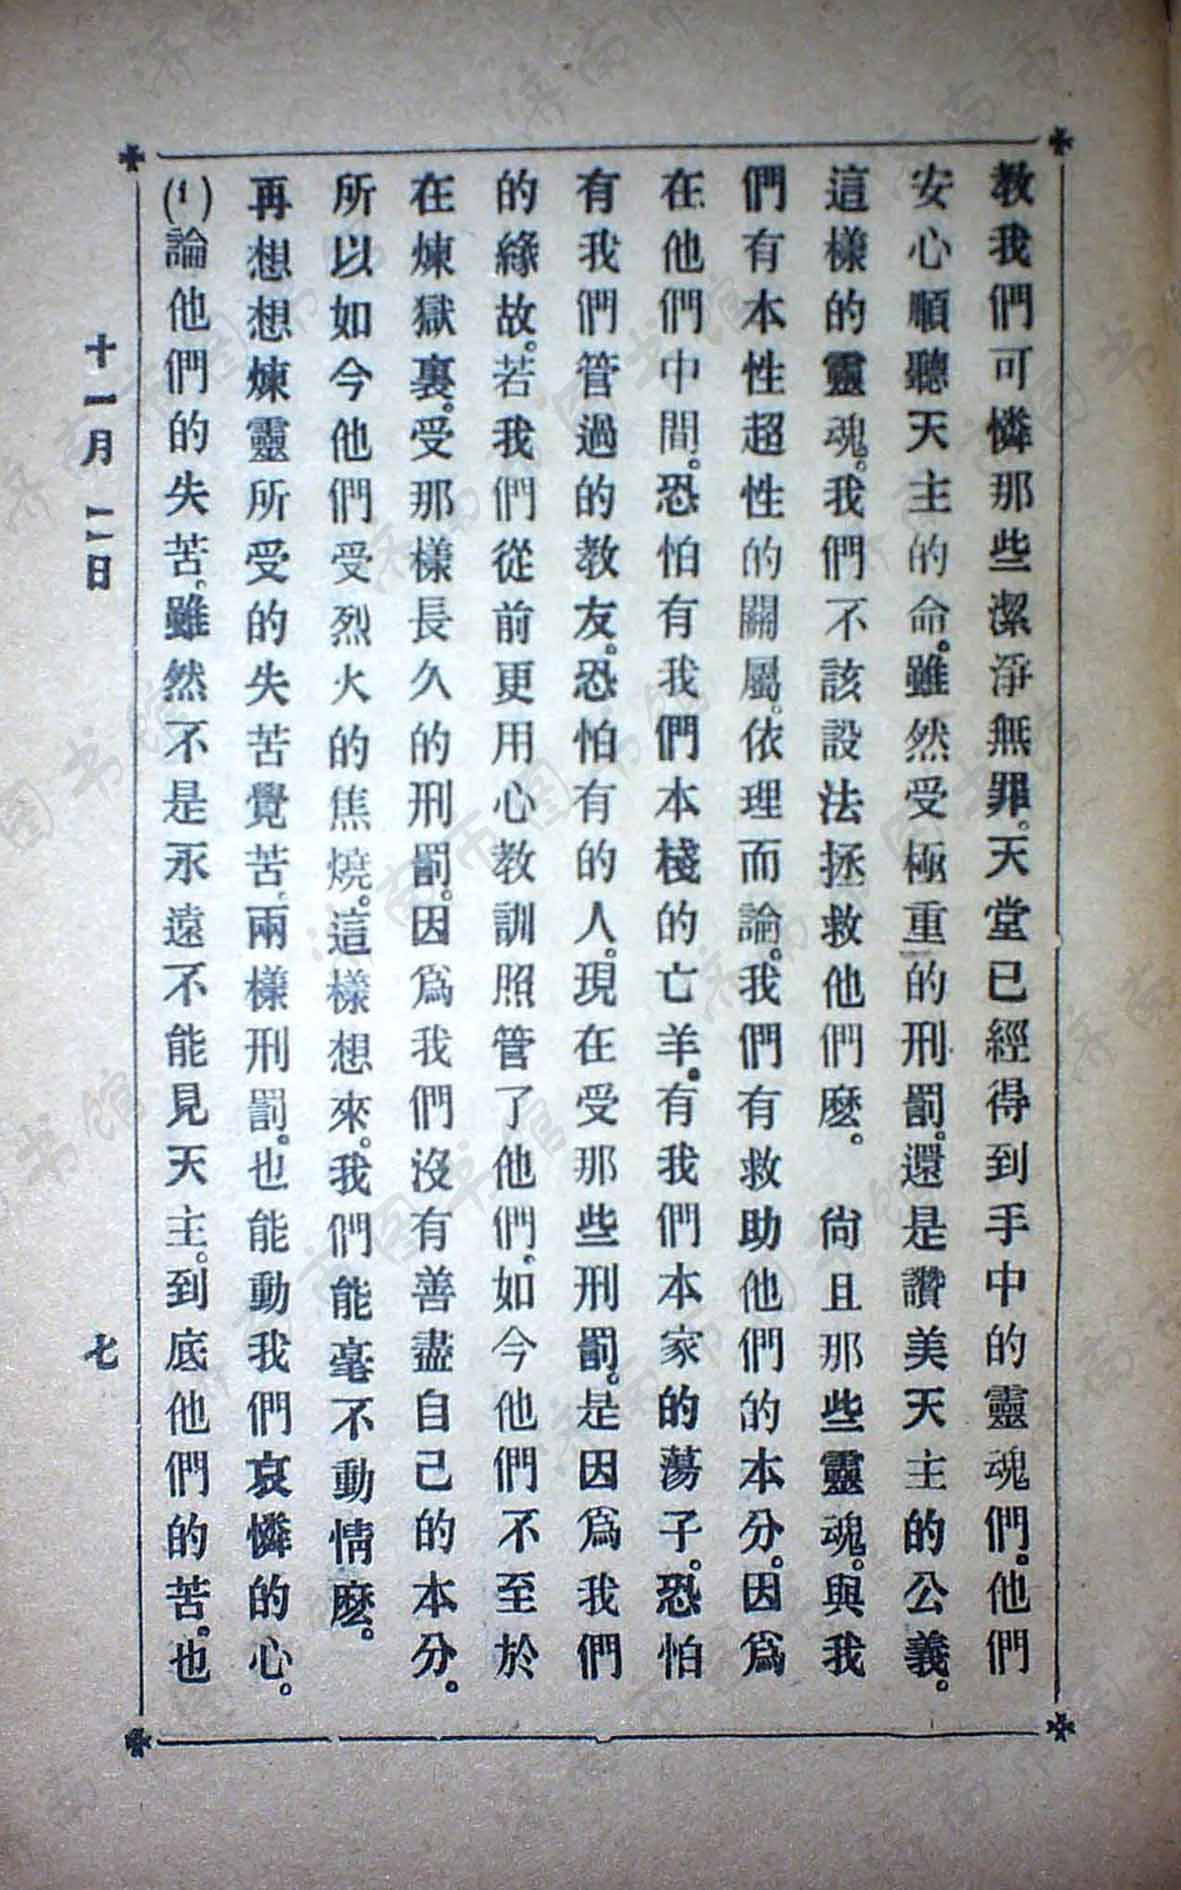 教我們可憐那些潔淨無罪。天堂已經得到手中的靈魂們。他們
安心順聽天主的命。雖然受極重的刑罰。還是讚美天主的公義。
這樣的靈魂。我們不該設法拯救他們麽。　尙且那些靈魂。與我
們有本性超性的關屬。依理而論。我們有救助他們的本分。因爲
在他們中間。恐怕有我們本棧的亡羊。有我們本家的蕩子。恐怕
有我們管過的教友。恐怕有的人。現在受那些刑罰。是因爲我們
的緣故。若我們從前更用心教訓照管了他們。如今他們不至於
在煉獄裏。受那樣長久的刑罰。因爲我們沒有善盡自己的本分。
所以如今他們受烈火的焦燒。這樣想來。我們能毫不動情麽。
再想想煉靈所受的失苦覺苦。兩樣刑罰。也能動我們哀憐的心。
(1)論他們的失苦。雖然不是永遠不能見天主。到底他們的苦。也
十一月 二日
七
济南市图书馆